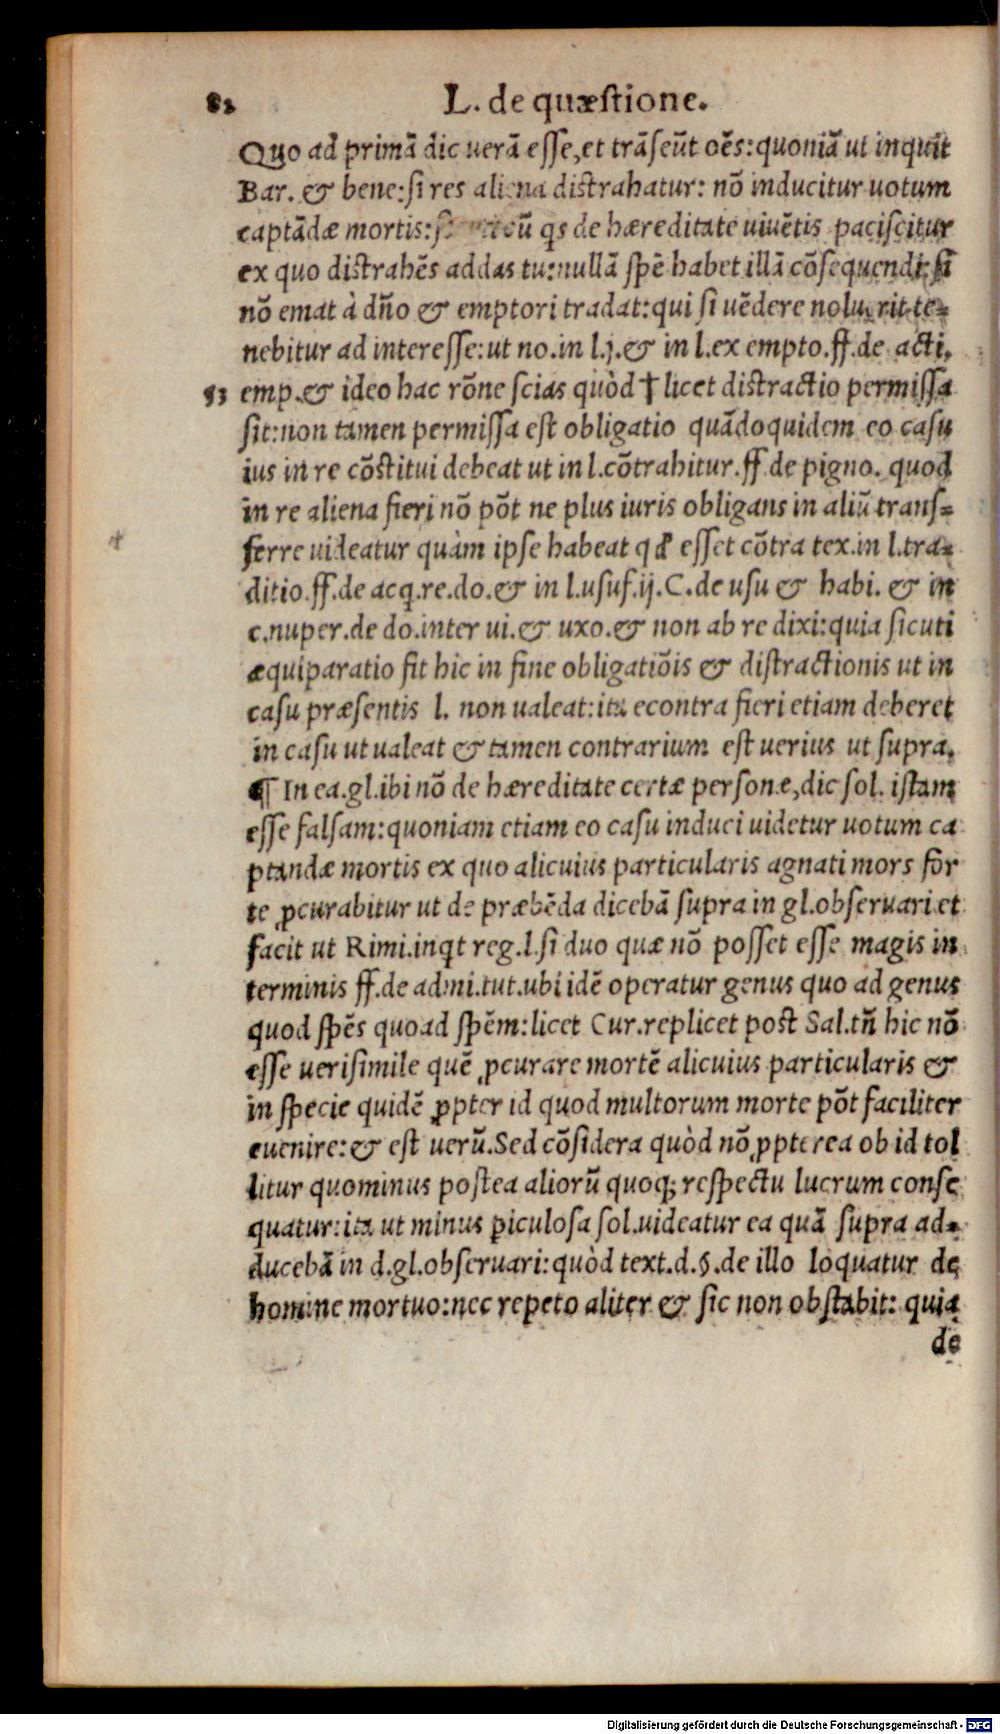 82 L. de quæstione.
Quo ad primã dic uerã esse, et trãseũt oẽs: quoniã ut inquit
Bar. & bene: si res aliena distrahatur: nõ inducitur uotum
captãdæ mortis: cũ qs de hæreditate uiuẽtis paciscitur
ex quo distrahẽs addas tu: nullã spẽ habet illã cõsequendi: si
nõ emat à dño & emptori tradat: qui si uẽdere noluerit te-
nebitur ad interesse: ut no. in l. j. & in l. ex empto. ff. de acti.
53 emp. & ideo hac rõne scias quòd † licet distractio permissa
sit: non tamen permissa est obligatio quãdoquidem eo casu
ius in re cõstitui debeat ut in l. cõtrahitur. ff. de pigno. quod
in re aliena fieri nõ põt ne plus iuris obligans in aliũ trans-
ferre uideatur quàm ipse habeat qđ esset cõtra tex. in l. tra-
ditio. ff. de acq. re. do. & in l. usuf. ij. C. de usu & habi. & in
c. nuper. de do. inter ui. & uxo. & non ab re dixi: quia sicuti
æquiparatio fit hic in fine obligatiõis & distractionis ut in
casu præsentis l. non ualeat: ita econtra fieri etiam deberet
in casu ut ualeat & tamen contrarium est uerius ut supra.
¶ In ea. gl. ibi nõ de hæreditate certæ personæ, dic sol. istam
esse falsam: quoniam etiam eo casu induci uidetur uotum ca
ptandæ mortis ex quo alicuius particularis agnati mors for
te ꝓcurabitur ut de præbẽda dicebã supra in gl. obseruari. et
facit ut Rimi. inqt reg. l. si duo quæ nõ posset esse magis in
terminis ff. de admi. tut. ubi idẽ operatur genus quo ad genus
quod spẽs quoad spẽm: licet Cur. replicet post Sal. tñ hic nõ
esse uerisimile quẽ ꝓcurare mortẽ alicuius particularis &
in specie quidẽ ꝓpter id quod multorum morte põt faciliter
euenire: & est uerũ. Sed cõsidera quòd nõ ꝓpterea ob id tol
litur quominus postea aliorũ quoq; respectu lucrum conse
quatur: ita ut minus ꝑiculosa sol. uideatur ea quã supra ad-
ducebã in d. gl. obseruari: quòd text. d. §. de illo loquatur de
homine mortuo: nec repeto aliter & sic non obstabit: quia
de
Digitalisierung gefördert durch die Deutsche Forschungsgemeinschaft - DFG